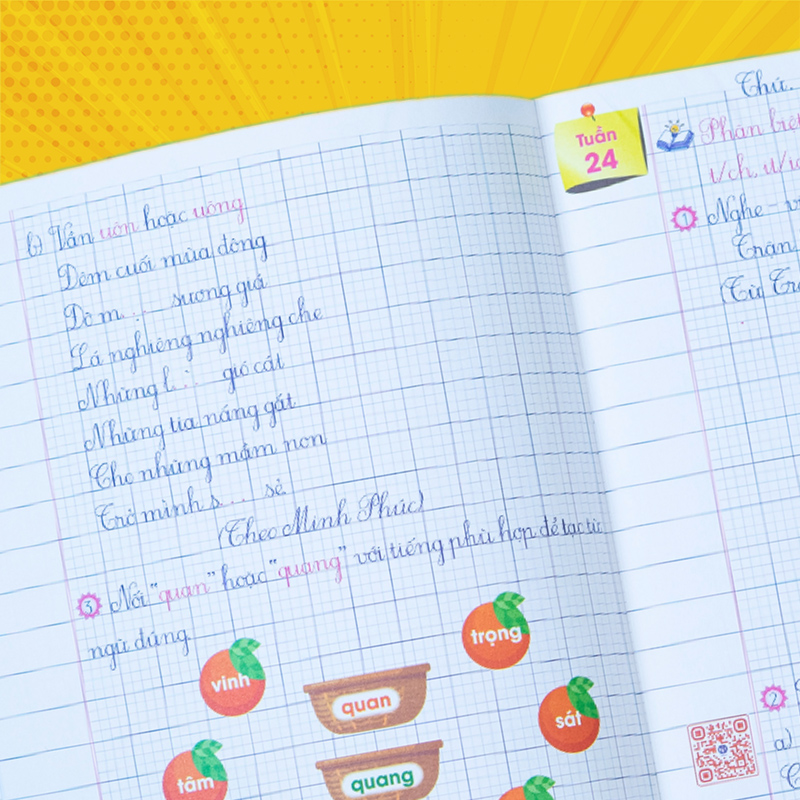 b) Vần uôn hoặc uông
Đêm cuối mùa đông
Đò m... sương giá
Lá nghiêng nghiêng che
Những l... gió cát
Những tia nắng gắt
Cho những mầm non
Trở mình s... sẻ
(Theo Minh Phúc)
3 Nối "quan" hoặc "quang" với tiếng phù hợp để tạo từ
ngữ đúng.
vinh
trọng
quan
sát
tâm
quang
Tuần
24
Thứ...
Phân biệt
1 Nghe - v
Trần
2
a)